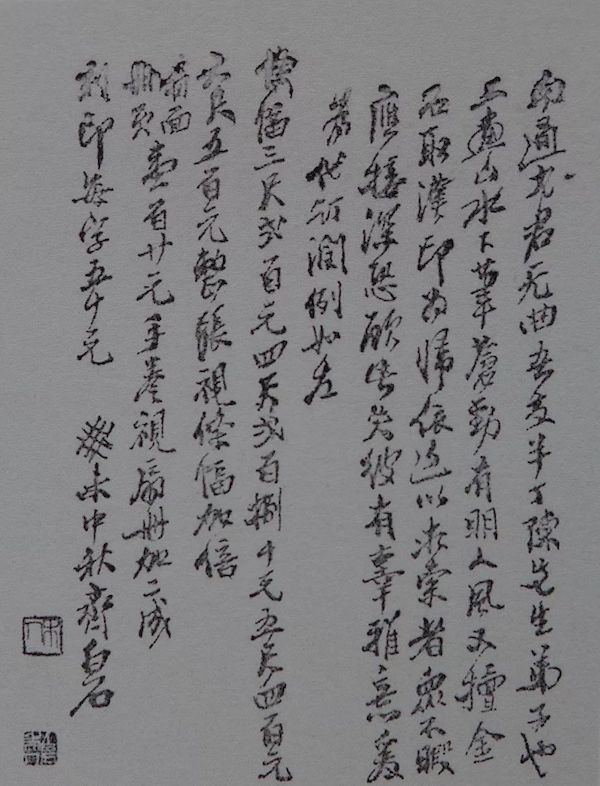 南通尤君无曲吾友半丁陳先生弟子也
工畫山水下筆蒼勁有明人風又擅金
石取漢印為歸依近以求索者衆不暇
應接深恐顧此失彼有辜雅意爰
為代訂潤例如左
幅三尺弍百元四尺弍百捌十元五尺四百元
六尺五百元整張視條幅加倍
扇面冊頁壹百廿元手卷視扇冊加二成
刻印每字五十元 癸未中秋齊白石